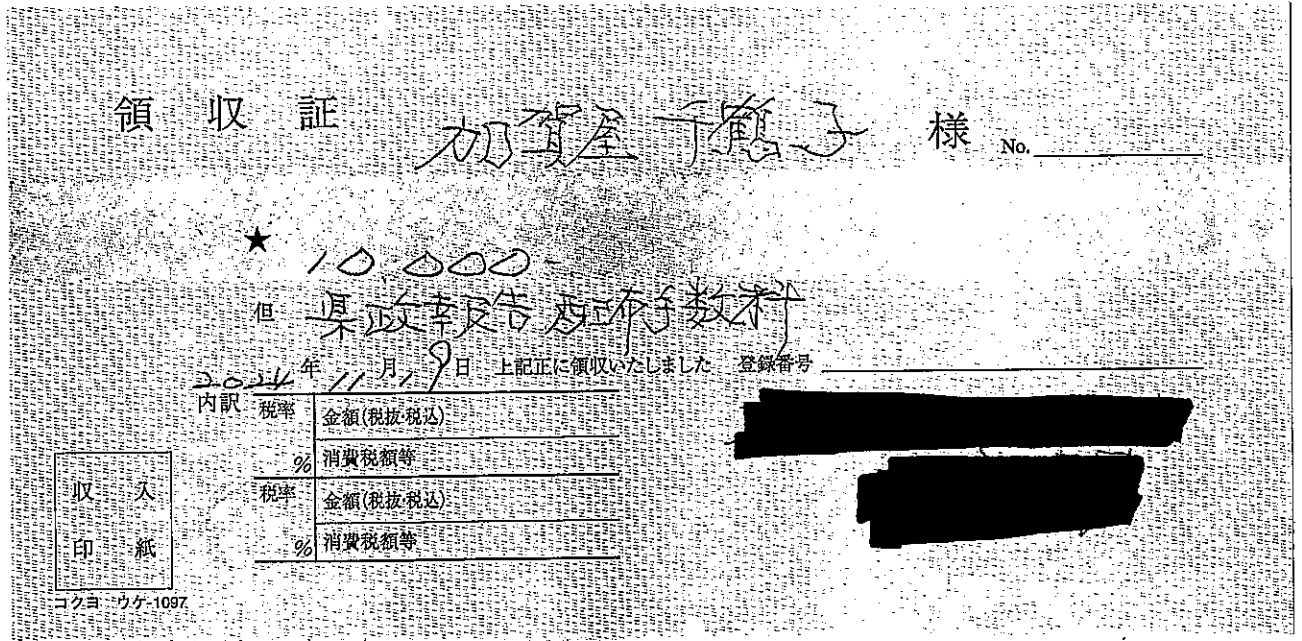 領収証 加賀屋千鶴子 様 No.
★ 10,000
但 県政報告配布手数料
2024年11月9日 上記正に領収いたしました 登録番号
内訳 税率 金額(税抜・税込)
% 消費税額等
税率 金額(税抜・税込)
% 消費税額等
収入
印紙
コクヨ ウケ-1097